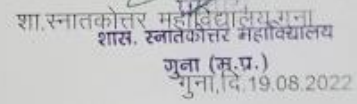 शा.स्नातकोत्तर महाविद्यालय,गुना
शास. स्नातकोत्तर महाविद्यालय
गुना (म.प्र.)
गुना,दि.19.08.2022